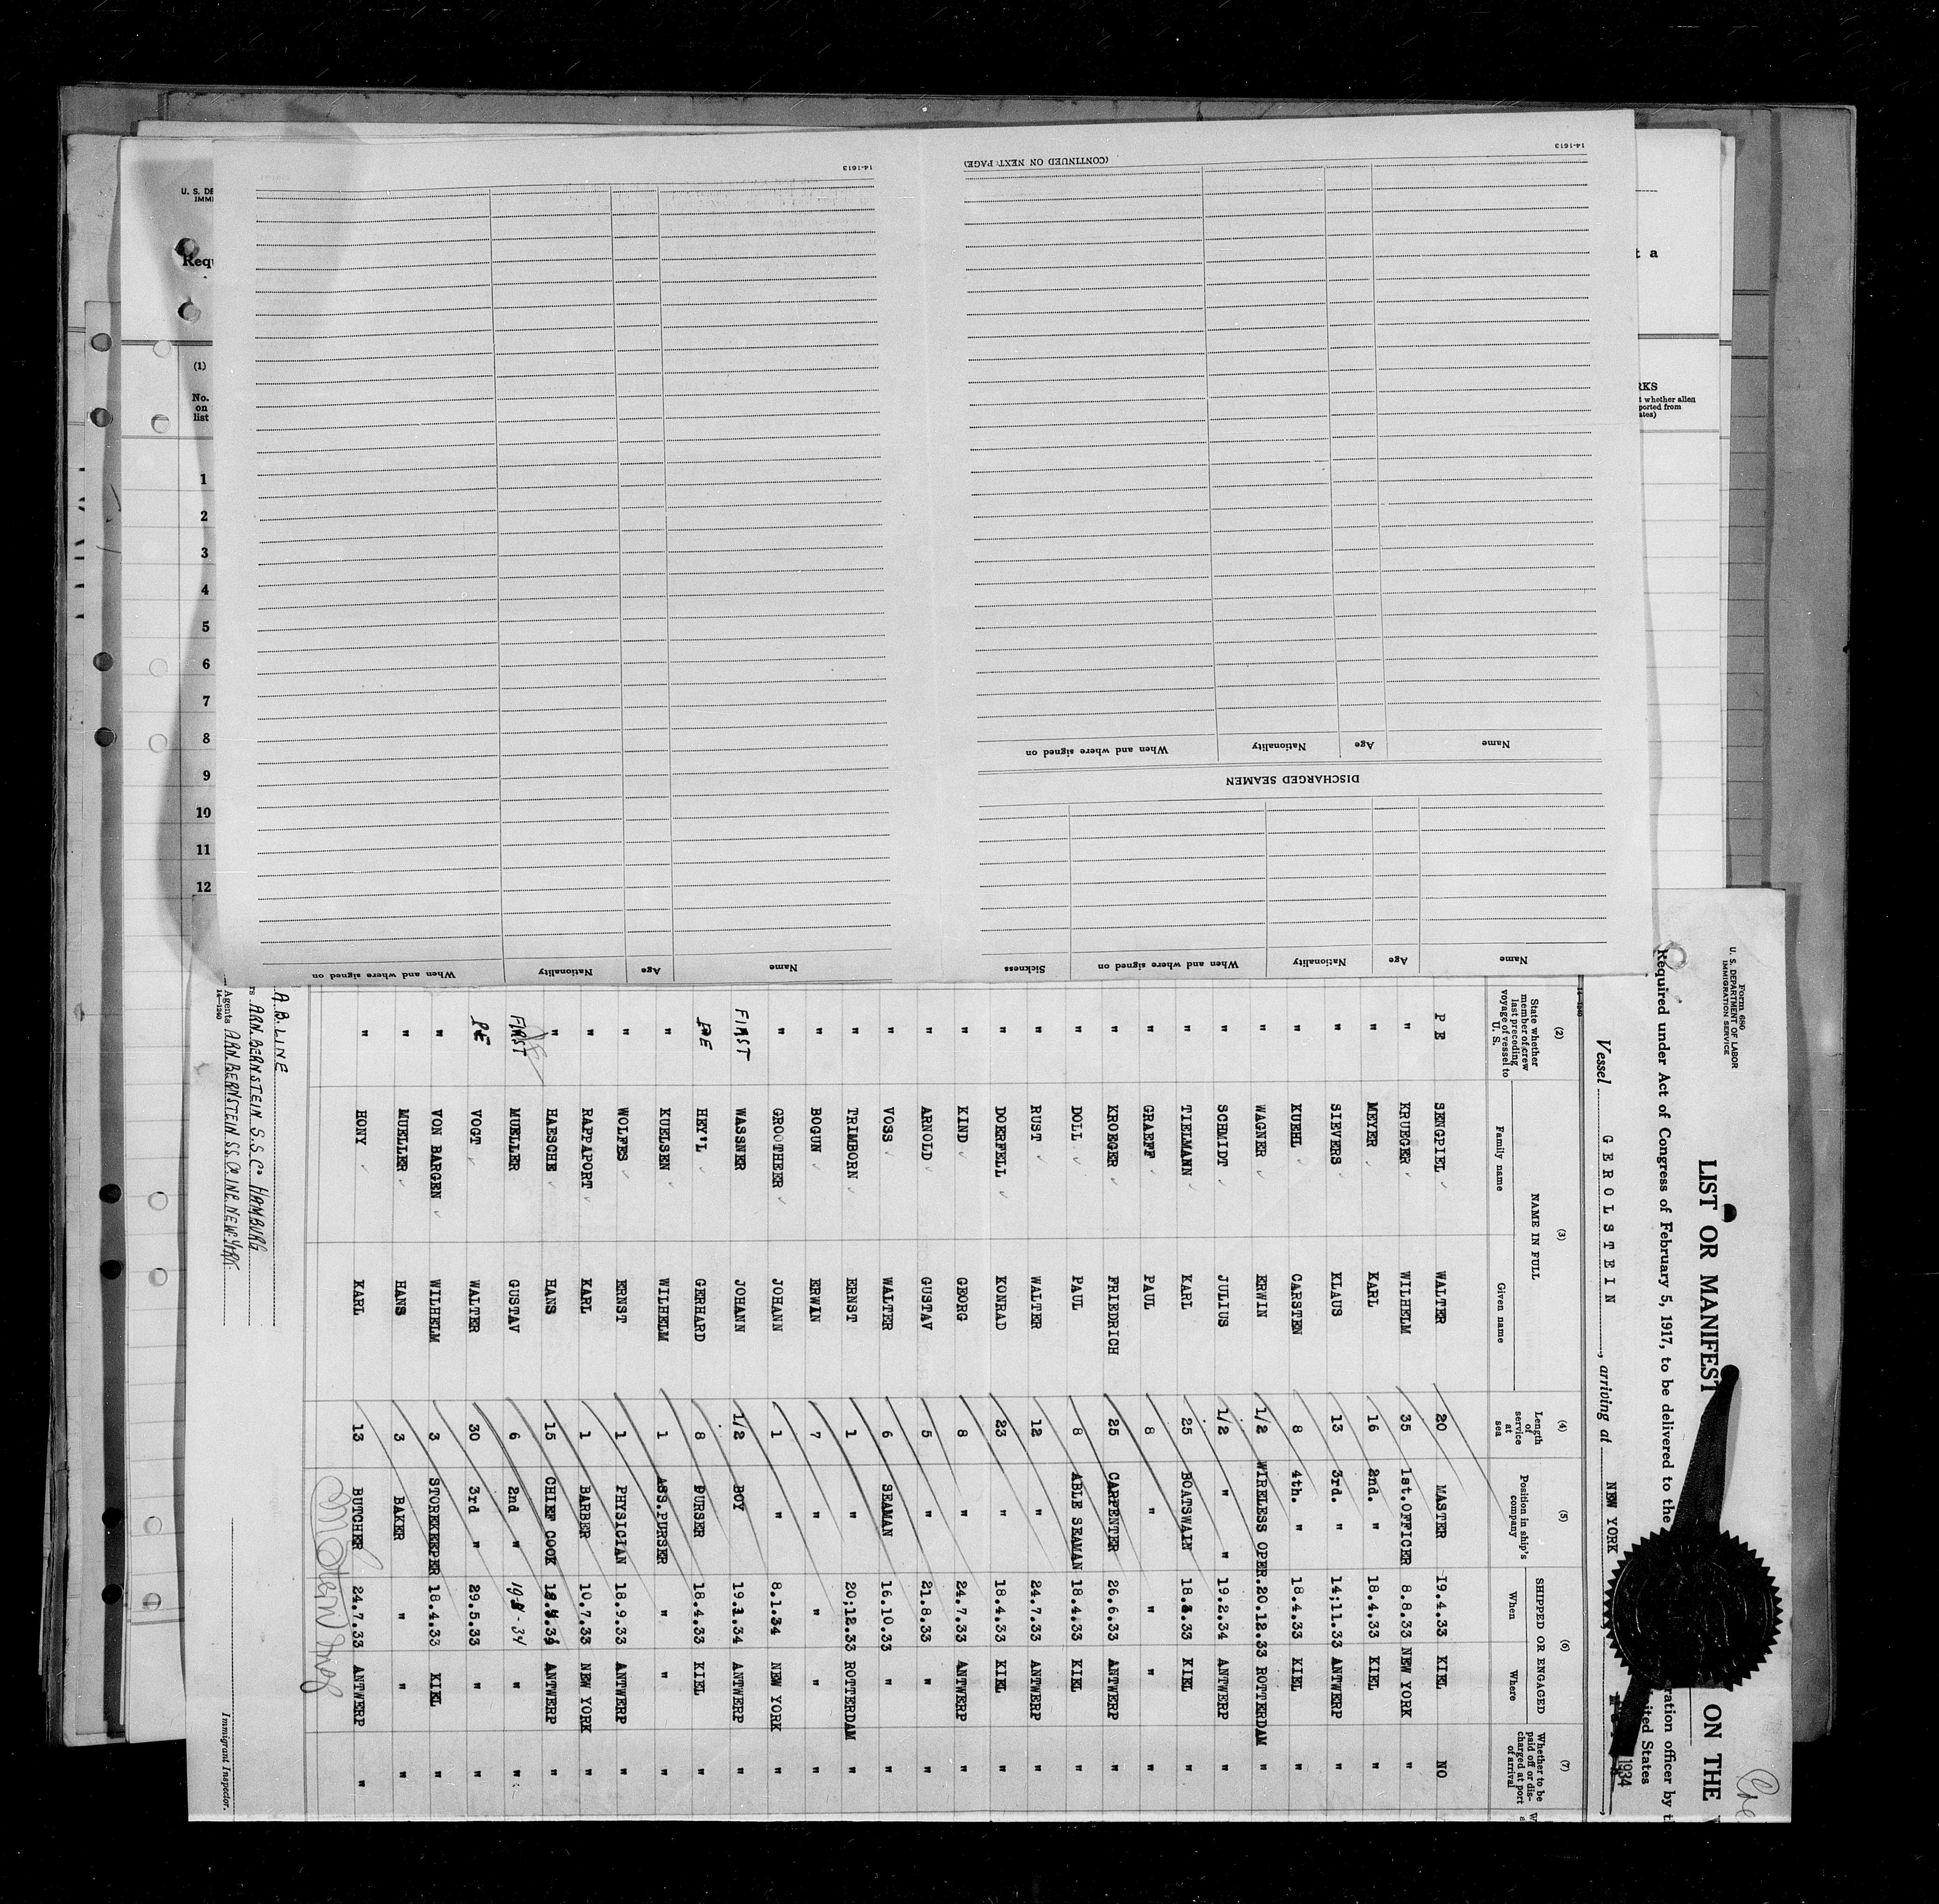 14-1613
(CONTINUED ON NEXT PAGE)
14-1613
When and where signed on
Nationality
Age
Name
DISCHARGED SEAMEN
When and where signed on
Nationality
Age
Name
Sickness
When and where signed on
Nationality
Age
Name
(1)
No. on list
1
2
3
4
5
6
7
8
9
10
11
12
Form 680
U. S. DEPARTMENT OF LABOR
IMMIGRATION SERVICE
LIST OR MANIFEST ON THE
Required under Act of Congress of February 5, 1917, to be delivered to the
ration officer by
ited States
Vessel GEROLSTEIN, arriving at NEW YORK 1934
(2) (3) (4) (5) (6) (7)
State whether member of crew last preceding voyage of vessel to U. S.
NAME IN FULL
Family name Given name
Length of service at sea
Position in ship's company
SHIPPED OR ENGAGED
When Where
Whether to be paid off or discharged at port of arrival
PE SENGPIEL WALTER 20 MASTER 19.4.33 KIEL NO
" KRUEGER WILHELM 35 1st.OFFICER 8.8.33 NEW YORK "
" MEYER KARL 16 2nd. " 18.4.33 KIEL "
" SIEVERS KLAUS 13 3rd. " 14;11.33 ANTWERP "
" KUEHL CARSTEN 8 4th. " 18.4.33 KIEL "
" WAGNER ERWIN 1/2 WIRELESS OPER. 20.12.33 ROTTERDAM "
" SCHMIDT JULIUS 1/2 " " 19.2.34 ANTWERP "
" TIELMANN KARL 25 BOATSWAIN 18.4.33 KIEL "
" GRAEFF PAUL 8 " " " "
" KROEGER FRIEDRICH 25 CARPENTER 26.6.33 ANTWERP "
" DOLL PAUL 8 ABLE SEAMAN 18.4.33 KIEL "
" RUST WALTER 12 " 24.7.33 ANTWERP "
" DOERFELL KONRAD 23 " 18.4.33 KIEL "
" KIND GEORG 8 " 24.7.33 ANTWERP "
" ARNOLD GUSTAV 5 " 21.8.33 " "
" VOSS WALTER 6 SEAMAN 16.10.33 " "
" TRIMBORN ERNST 1 " 20;12.33 ROTTERDAM "
" BOGUN ERWIN 7 " " " "
" GROOTHEER JOHANN 1 " 8.1.34 NEW YORK "
FIRST WASSNER JOHANN 1/2 BOY 19.1.34 ANTWERP "
PE HEY'L GERHARD 8 PURSER 18.4.33 KIEL "
" KUELSEN WILHELM 1 ASS.PURSER " " "
" WOLFES ERNST 1 PHYSICIAN 18.9.33 ANTWERP "
" RAPPAPORT KARL 1 BARBER 10.7.33 NEW YORK "
" HAESCHE HANS 15 CHIEF COOK ANTWERP "
FIRST MUELLER GUSTAV 6 2nd " " "
PE VOGT WALTER 30 3rd " 29.5.33 " "
" VON BARGEN WILHELM 3 STOREKEEPER 18.4.33 KIEL "
" MUELLER HANS 3 BAKER " " "
" HONY KARL 13 BUTCHER 24.7.33 ANTWERP "
A.B. LINE
ARN. BERNSTEIN S.S. Co HAMBURG
Agents ARN. BERNSTEIN S.S. Co. INC. NEW YORK
14-1240
Immigrant Inspector.